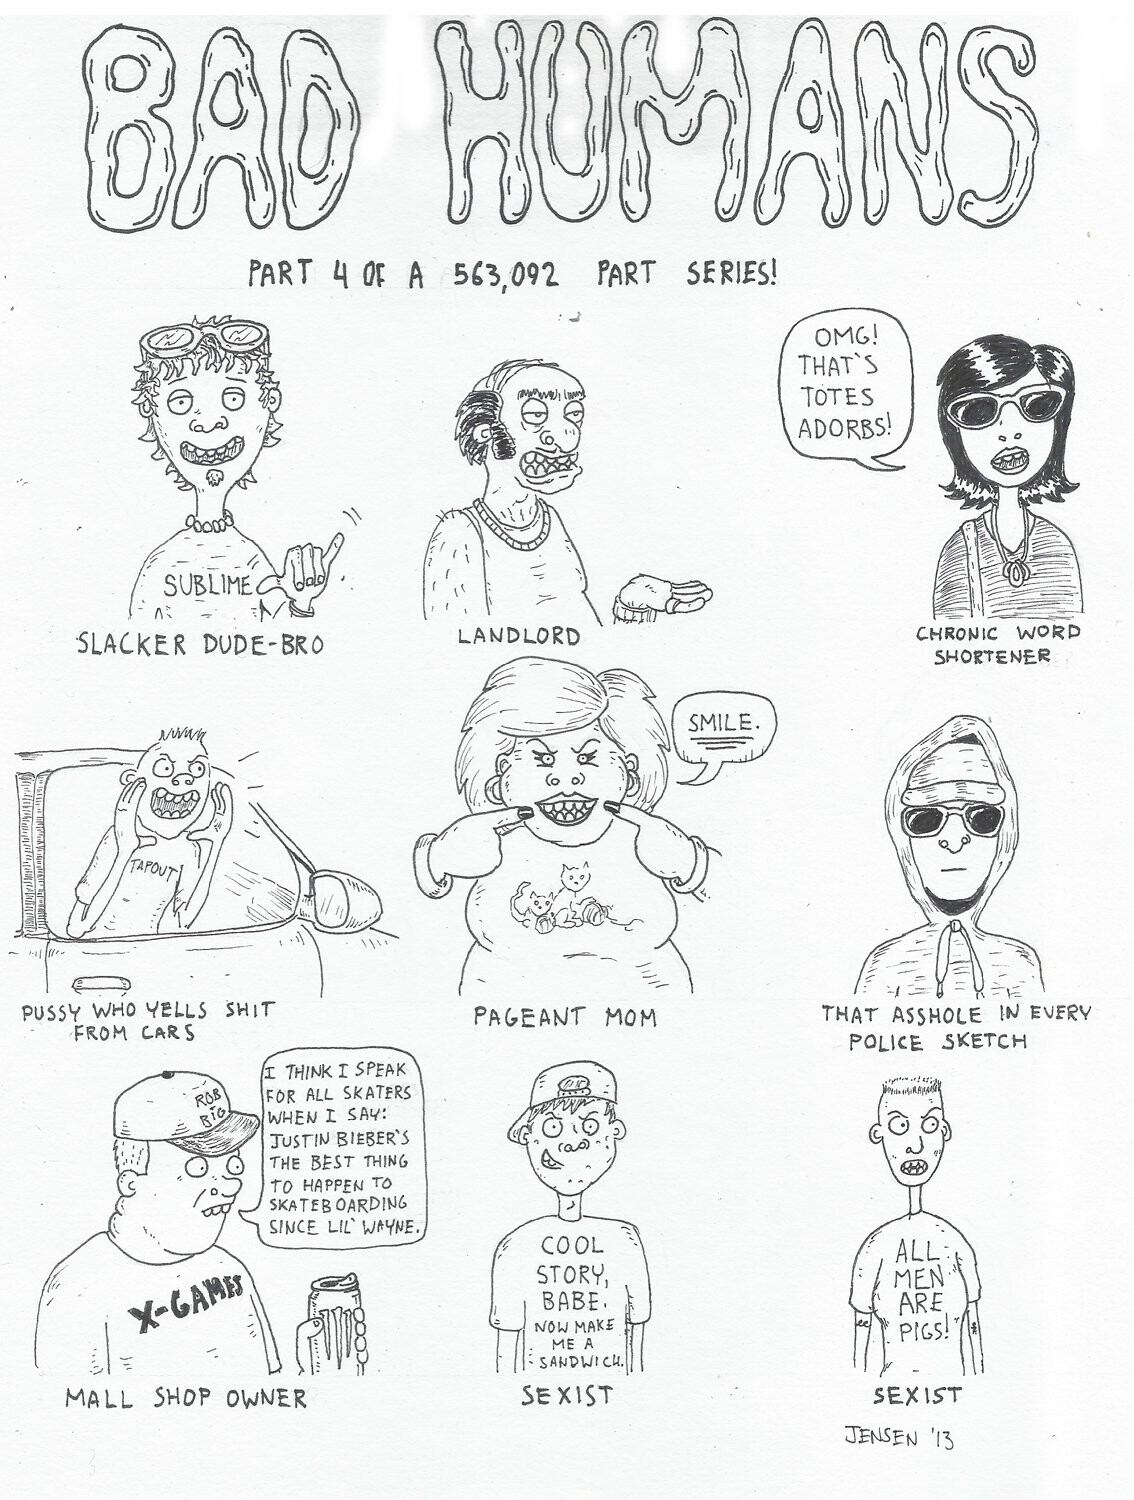 BAD HUMANS
PART 4 OF A 563,092 PART SERIES!
SUBLIME
SLACKER DUDE-BRO
LANDLORD
OMG!
THAT'S
TOTES
ADORBS!
CHRONIC WORD
SHORTENER
TAPOUT
PUSSY WHO YELLS SHIT
FROM CARS
SMILE.
PAGEANT MOM
THAT ASSHOLE IN EVERY
POLICE SKETCH
ROB
BIG
I THINK I SPEAK
FOR ALL SKATERS
WHEN I SAY:
JUSTIN BIEBER'S
THE BEST THING
TO HAPPEN TO
SKATEBOARDING
SINCE LIL' WAYNE.
X-GAMES
MALL SHOP OWNER
COOL
STORY,
BABE.
NOW MAKE
ME A
SANDWICH.
SEXIST
ALL
MEN
ARE
PIGS!
SEXIST
JENSEN '13